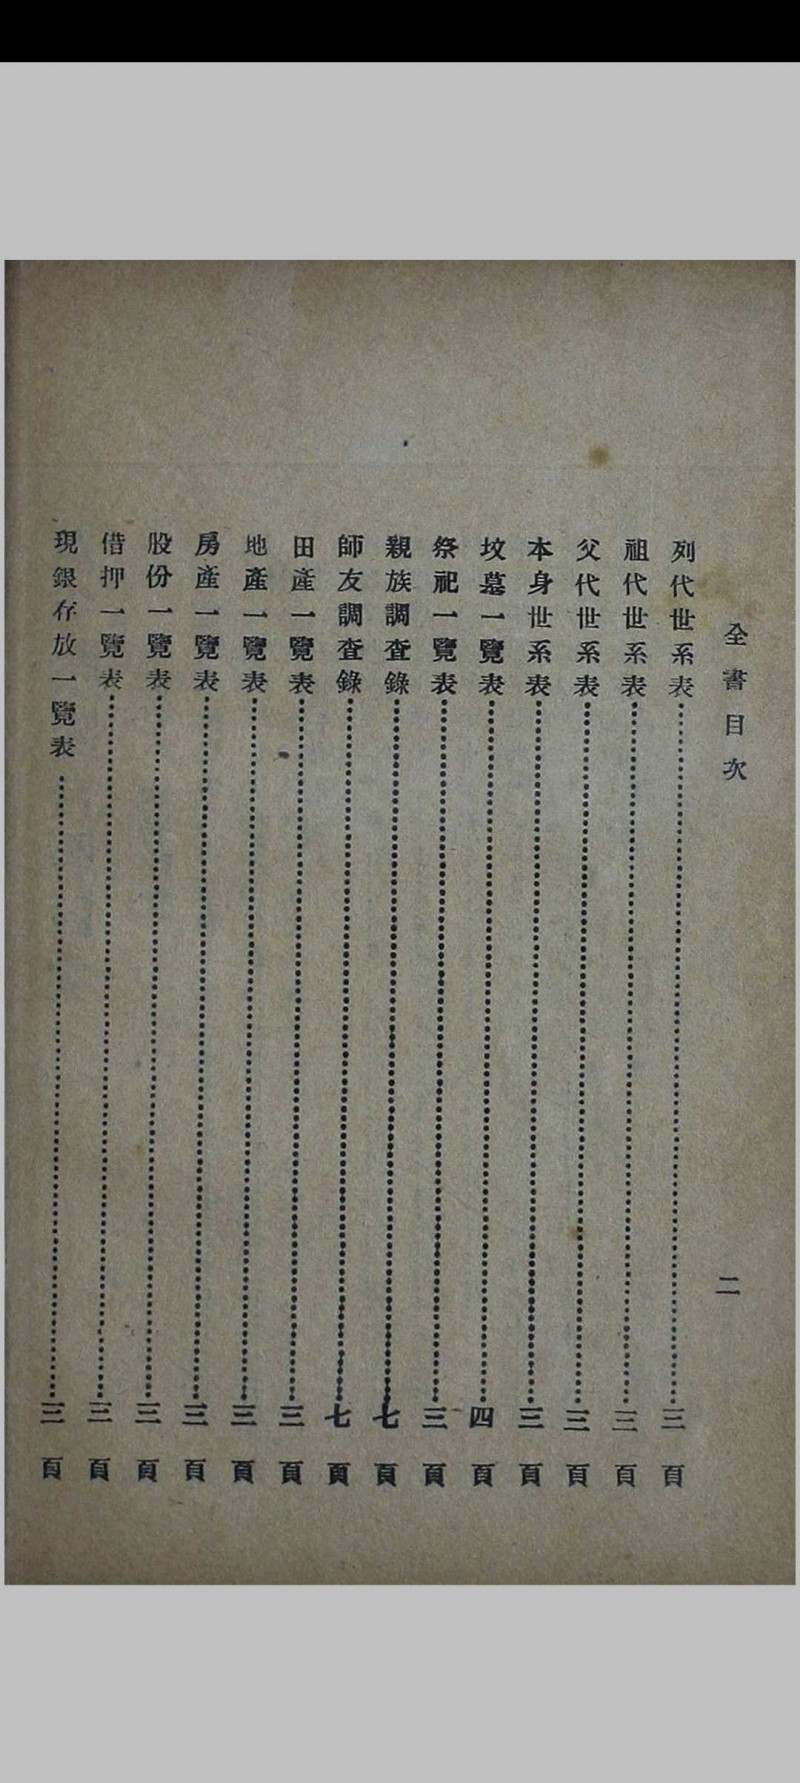 全書目次
二
列代世系表……三頁
祖代世系表……三頁
父代世系表……三頁
本身世系表……三頁
坟墓一覽表……四頁
祭祀一覽表……三頁
親族調查錄……七頁
師友調查錄……七頁
田產一覽表……三頁
地產一覽表……三頁
房產一覽表……三頁
股份一覽表……三頁
借押一覽表……三頁
現銀存放一覽表……三頁